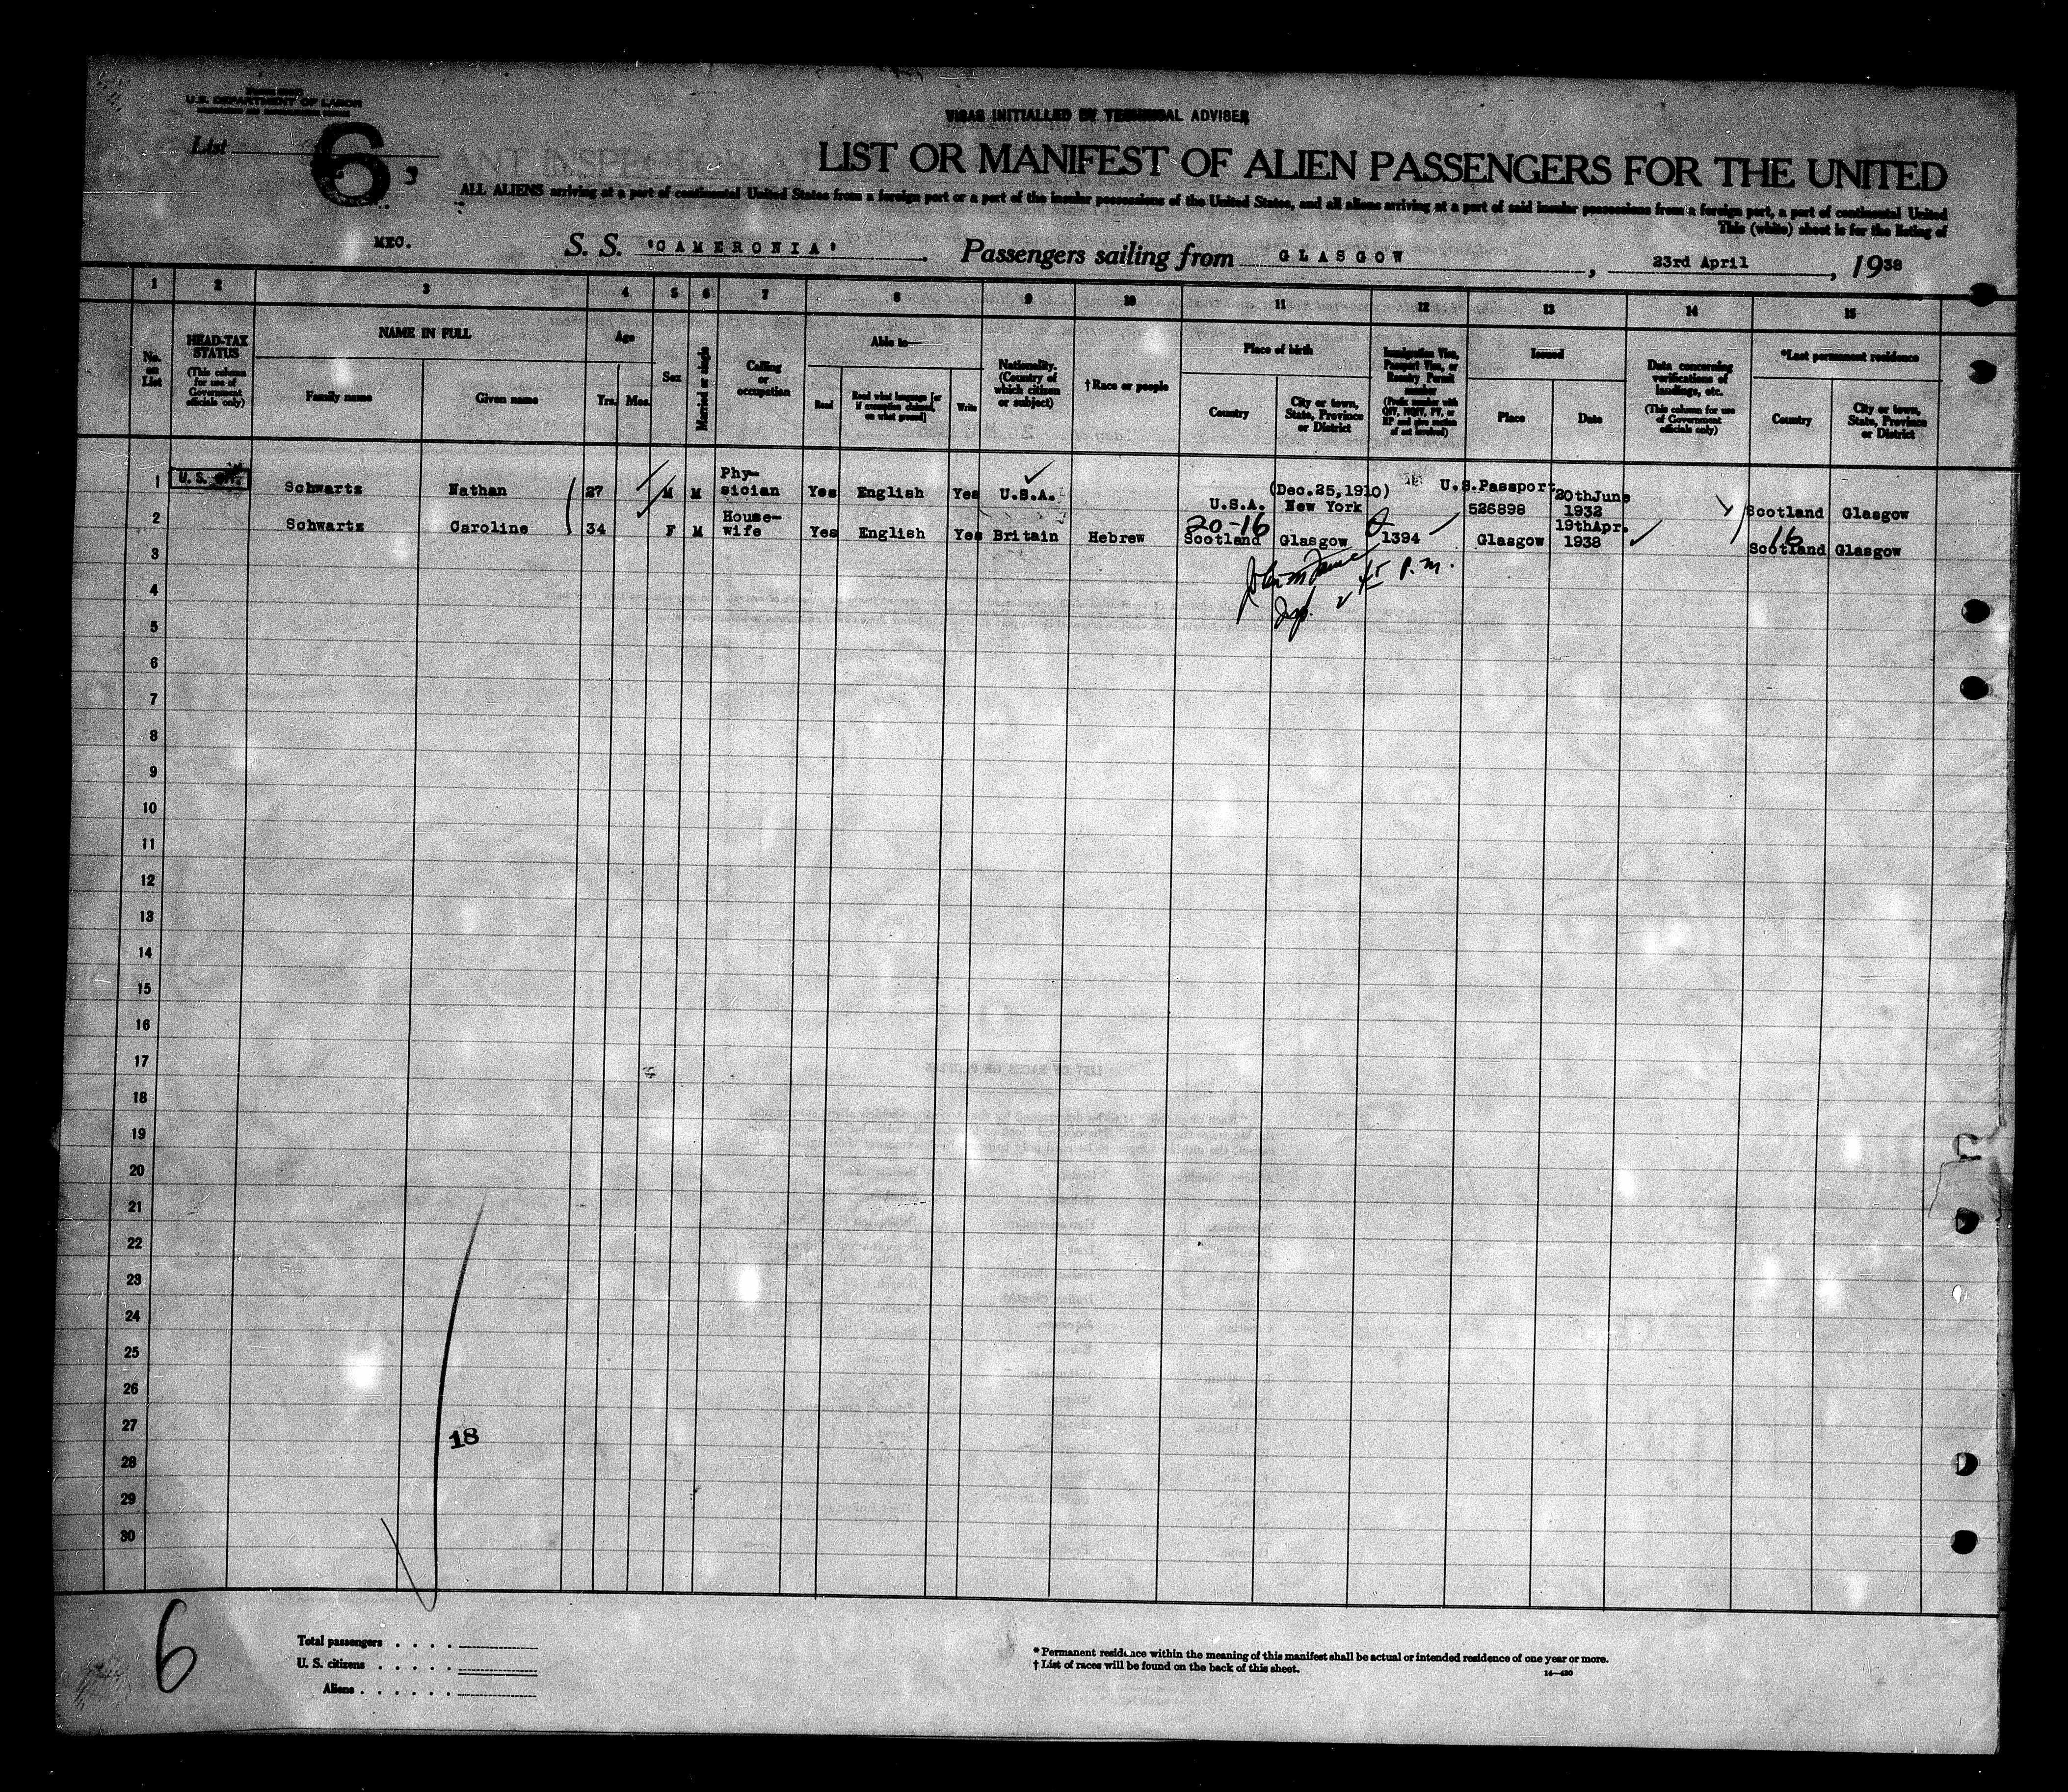 U.S. DEPARTMENT OF LABOR
VISAS INITIALLED BY TECHNICAL ADVISER
List 6
LIST OR MANIFEST OF ALIEN PASSENGERS FOR THE UNITED
ALL ALIENS arriving at a port of continental United States from a foreign port or a port of the insular possessions of the United States, and all aliens arriving at a port of said insular possessions from a foreign port, a port of continental United
This (white) sheet is for the listing of
MEC. S. S. "CAMERONIA" Passengers sailing from GLASGOW, 23rd April, 1938
1 2 3 4 5 6 7 8 9 10 11 12 13 14 15
No. on List
HEAD-TAX STATUS
(This column for use of Government officials only)
NAME IN FULL
Family name Given name
Age
Yrs. Mos.
Sex
Married or single
Calling or occupation
Able to—
Read Read what language [or if exemption claimed, on what ground] Write
Nationality. (Country of which citizen or subject)
†Race or people
Place of birth
Country City or town, State, Province or District
Immigration Visa, Passport Visa, or Reentry Permit number
(Prefix number with QIV, NQIV, PV, or RP and give section of act involved)
Issued
Place Date
Data concerning verifications of landings, etc.
(This column for use of Government officials only)
*Last permanent residence
Country City or town, State, Province or District
1 U. S. Schwartz Nathan 27 M M Phy-sician Yes English Yes U.S.A. U.S.A. (Dec.25,1910) New York U.S.Passport 526898 20thJune 1932 Scotland Glasgow
2 Schwartz Caroline 34 F M House-wife Yes English Yes Britain Hebrew 20-16 Scotland Glasgow 1394 Glasgow 19thApr. 1938 16 Scotland Glasgow
3
4
5
6
7
8
9
10
11
12
13
14
15
16
17
18
19
20
21
22
23
24
25
26
27
18
28
29
30
6
Total passengers . . . .
U. S. citizens . . . . .
Aliens . . . . . .
* Permanent residence within the meaning of this manifest shall be actual or intended residence of one year or more.
† List of races will be found on the back of this sheet.
14—430